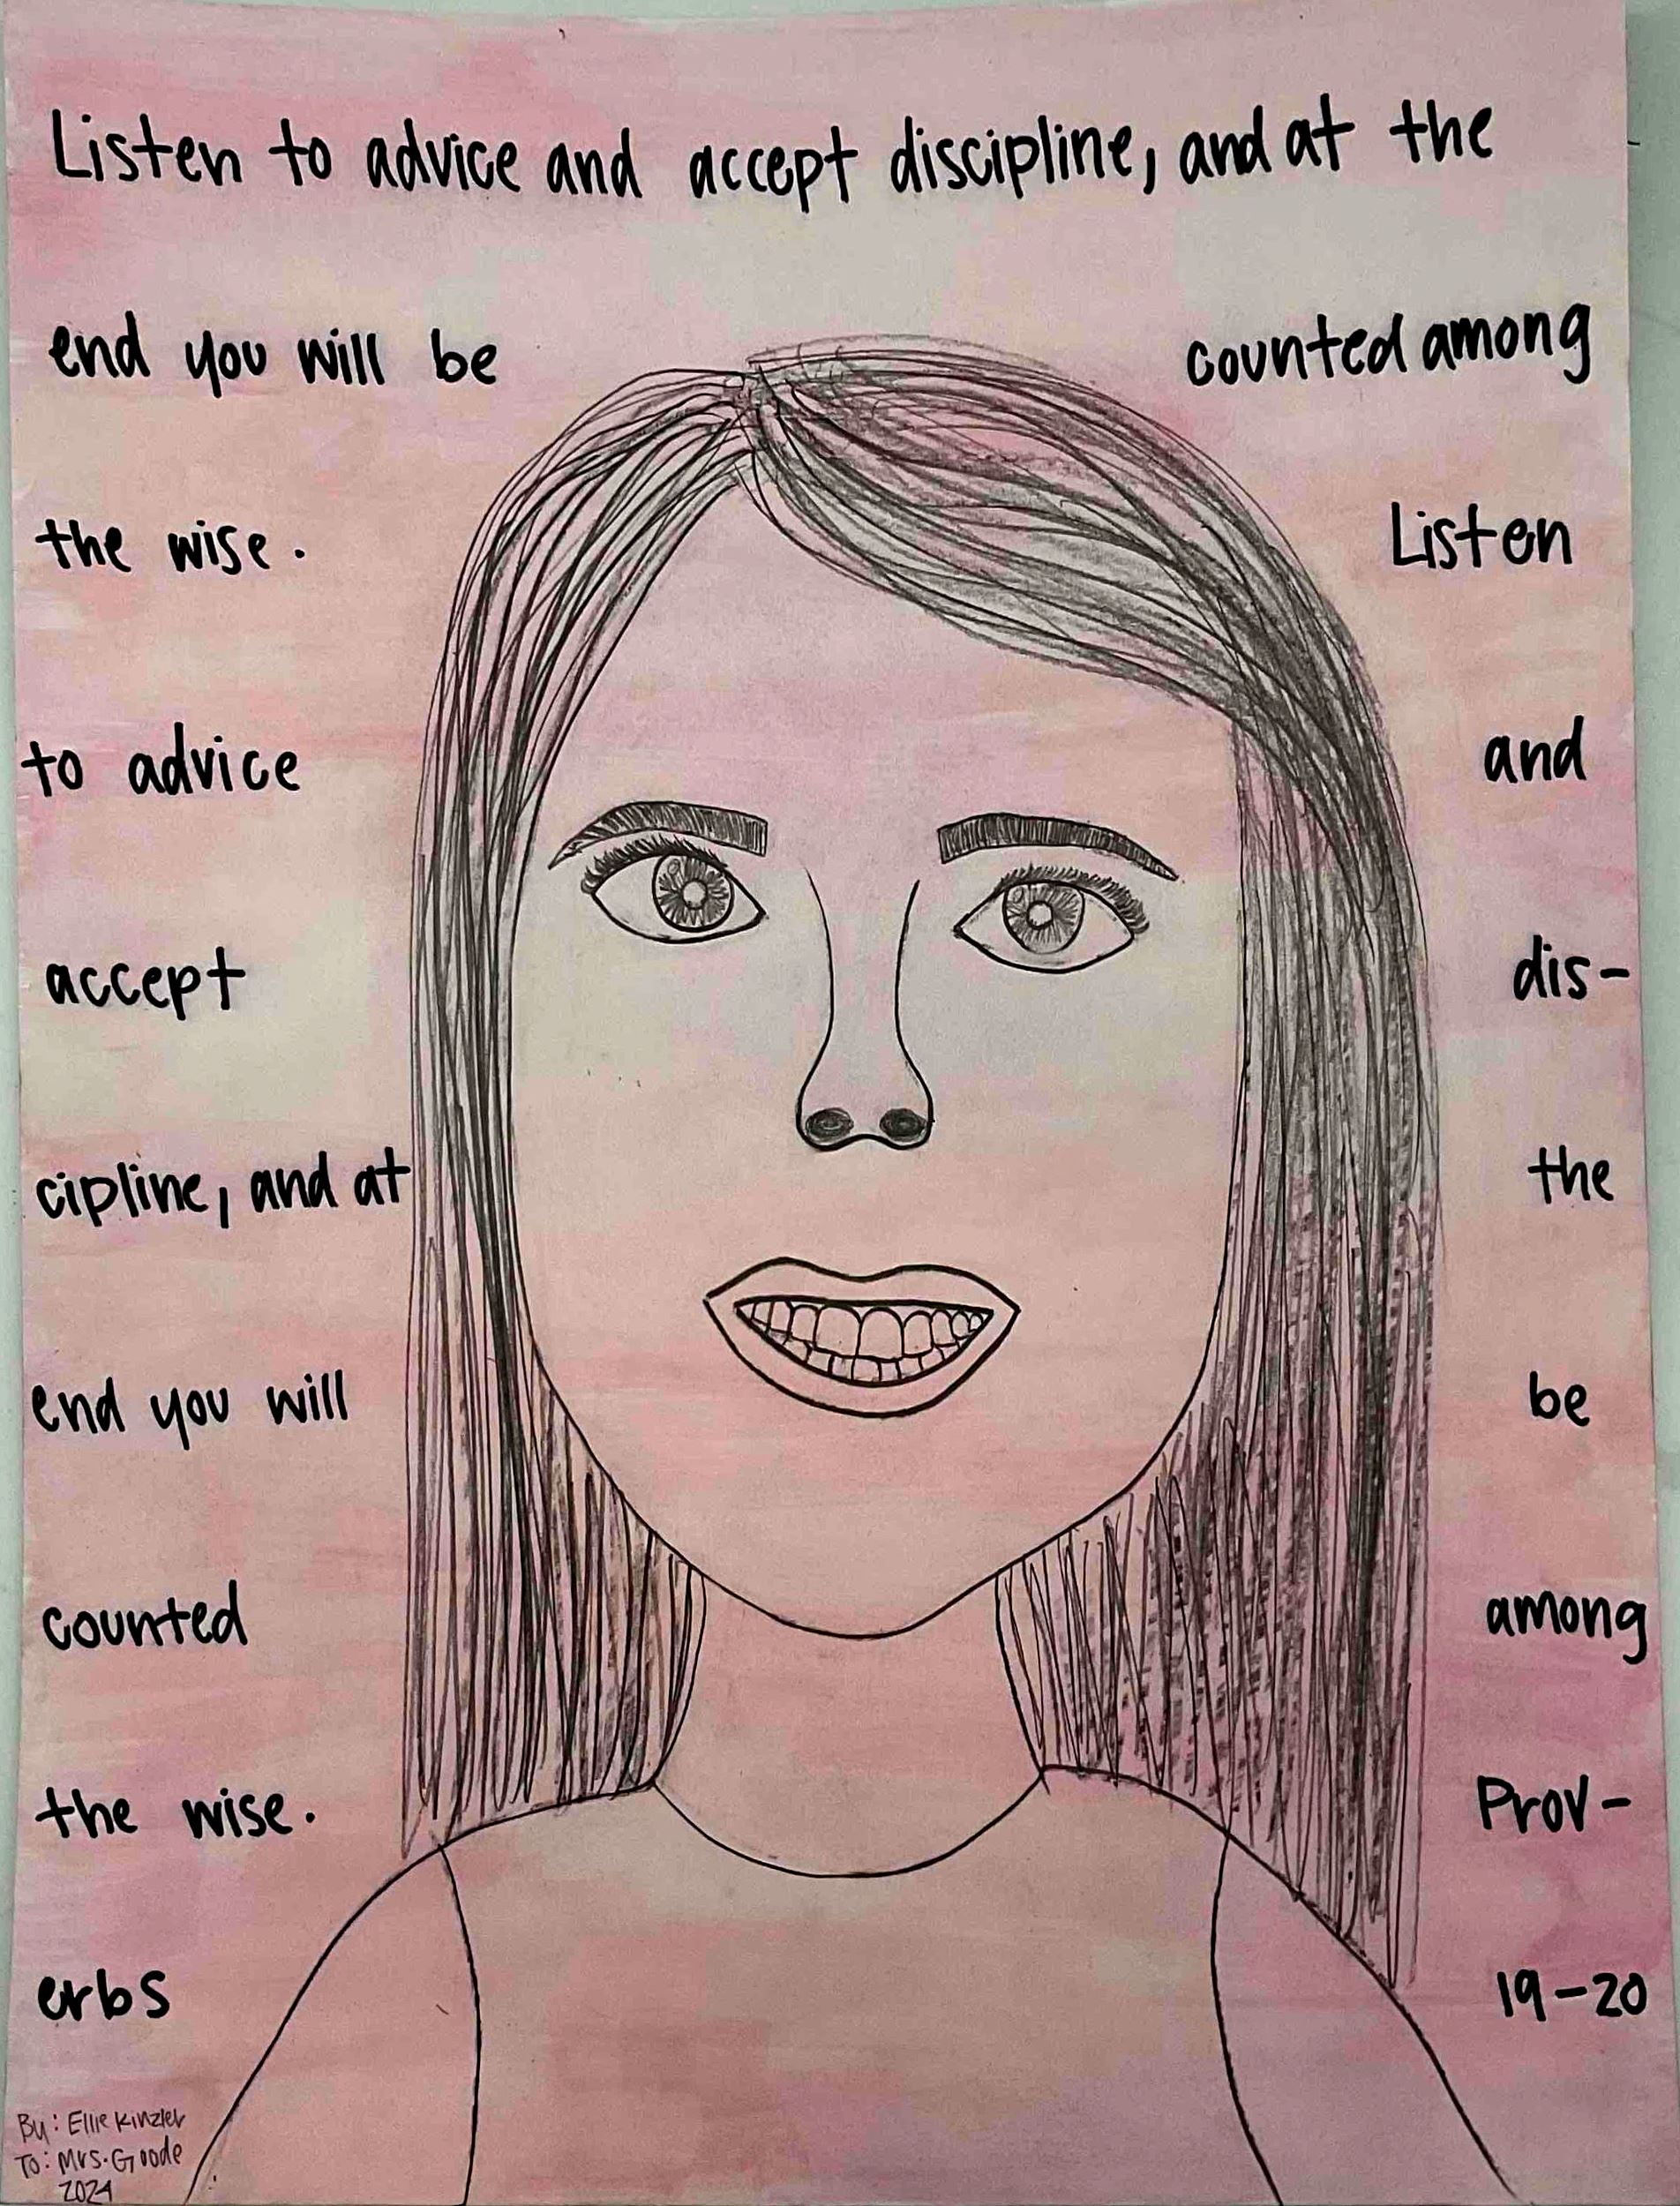 Listen to advice and accept discipline, and at the
end you will be counted among
the wise. Listen
to advice and
accept dis-
cipline, and at the
end you will be
counted among
the wise. Prov-
erbs 19-20
By: Ellie Kinzler
To: Mrs. Goode
2024